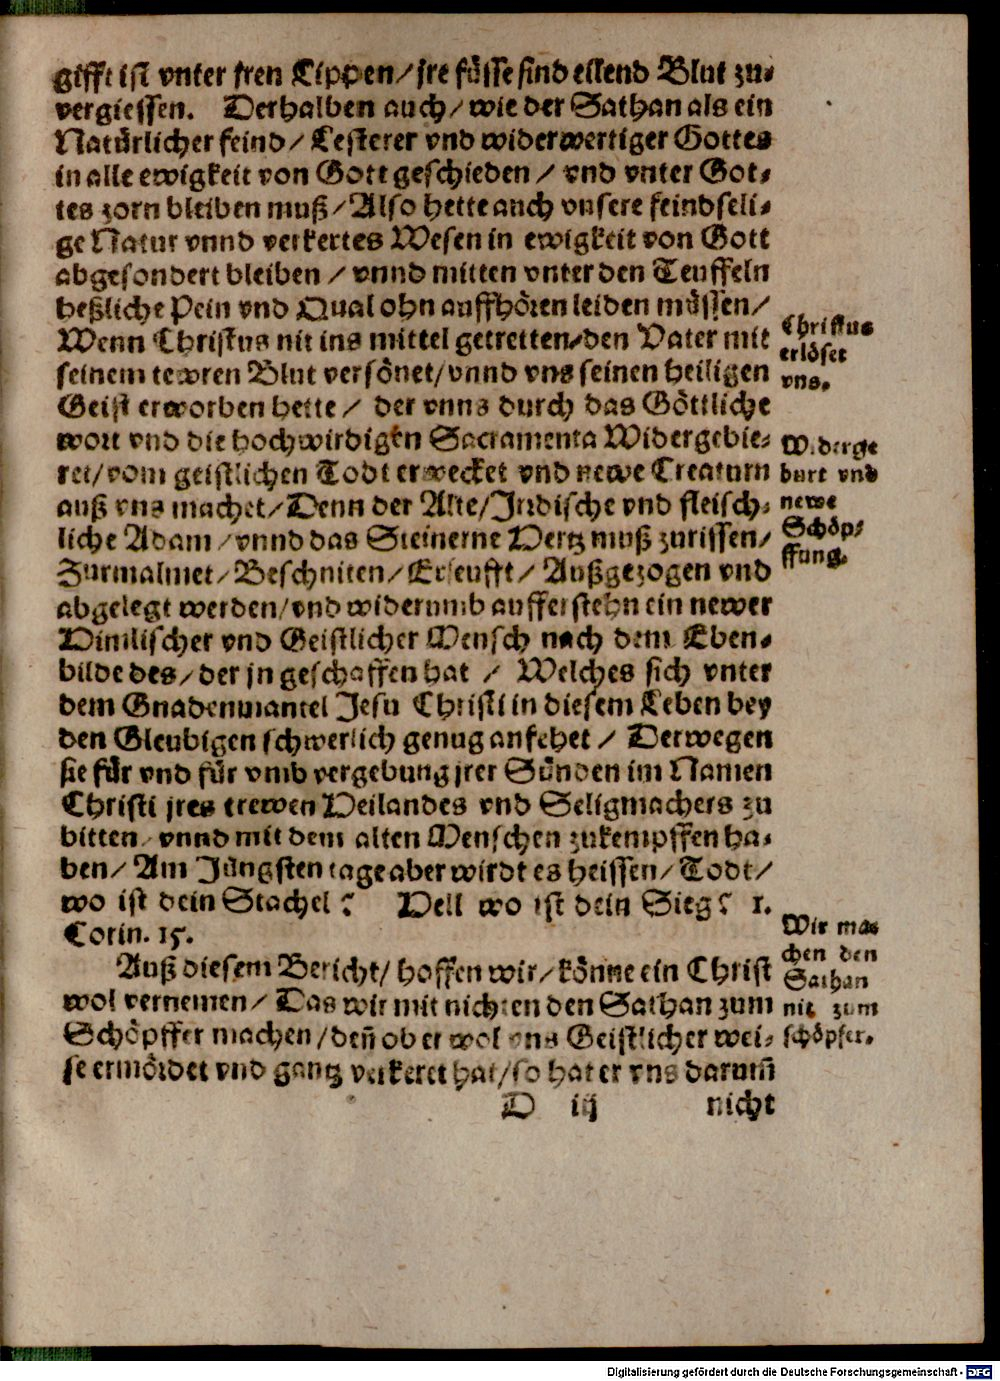 gifft ist vnter jren Lippen/ jre füsse sind eilend Blut zu-
vergiessen. Derhalben auch/ wie der Sathan als ein
Natürlicher feind/ Lesterer vnd widerwertiger Gottes
in alle ewigkeit von Gott geschieden / vnd vnter Got-
tes zorn bleiben muß/ Also hette auch vnsere feindseli-
ge Natur vnnd verkertes Wesen in ewigkeit von Gott
abgesondert bleiben / vnnd mitten vnter den Teuffeln
heßliche Pein vnd Qual ohn auffhören leiden müssen/
Wenn Christus nit ins mittel getretten/ den Vater mit
seinem tewren Blut versönet/ vnnd vns seinen heiligen
Geist erworben hette / der vnns durch das Göttliche
wort vnd die hochwirdigen Sacramenta Widergebie-
ret/ vom geistlichen Todt erwecket vnd newe Creaturn
auß vns machet/ Denn der Alte/ Irrdische vnd fleisch-
liche Adam / vnnd das Steinerne Hertz muß zurissen/
Zurmalmet/ Beschniten/ Erseufft/ Außgezogen vnd
abgelegt werden/ vnd widerumb aufferstehn ein newer
Himlischer vnd Geistlicher Mensch nach dem Eben-
bilde des/ der jn geschaffen hat / Welches sich vnter
dem Gnadenmantel Jesu Christi in diesem Leben bey
den Gleubigen schwerlich genug anfehet / Derwegen
sie für vnd für vmb vergebung jrer Sünden im Namen
Christi jres trewen Heilandes vnd Seligmachers zu
bitten / vnnd mit dem alten Menschen zukempffen ha-
ben/ Am Jüngsten tage aber wirdt es heissen/ Todt/
wo ist dein Stachel? Hell wo ist dein Sieg? 1.
Corin. 15.
Auß diesem Bericht/ hoffen wir/ könne ein Christ
wol vernemen/ Das wir mit nichten den Sathan zum
Schöpffer machen/ deñ ob er wol vns Geistlicher wei-
se ermördet vnd gantz verkeret hat/ so hat er vns darum̃
D iij nicht
Christus
erlöset
vns.
Widerge
burt vnd
newe
Schöp-
ffung.
Wir ma-
chen den
Sathan
nit zum
schöpfer.
Digitalisierung gefördert durch die Deutsche Forschungsgemeinschaft - DFG